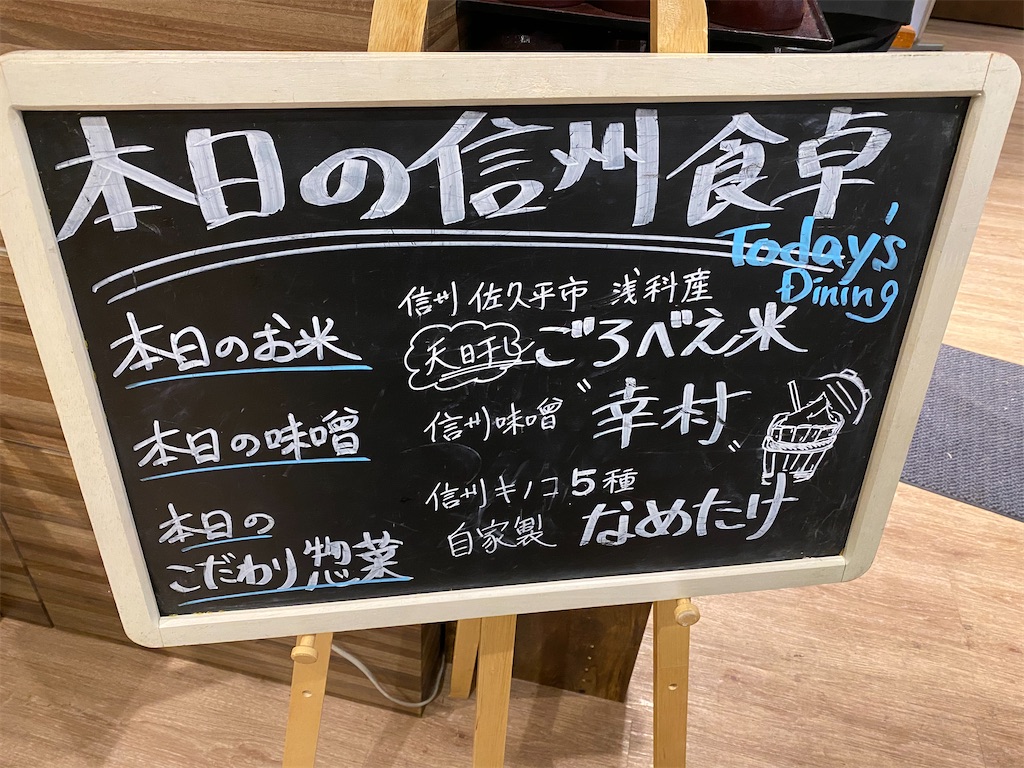 本日の信州食卓
Today's
Dining
信州 佐久平市 浅科産
本日のお米
天日干し ごろべえ米
本日の味噌
信州味噌 "幸村"
信州キノコ5種
本日の
こだわり惣菜
自家製 なめたけ